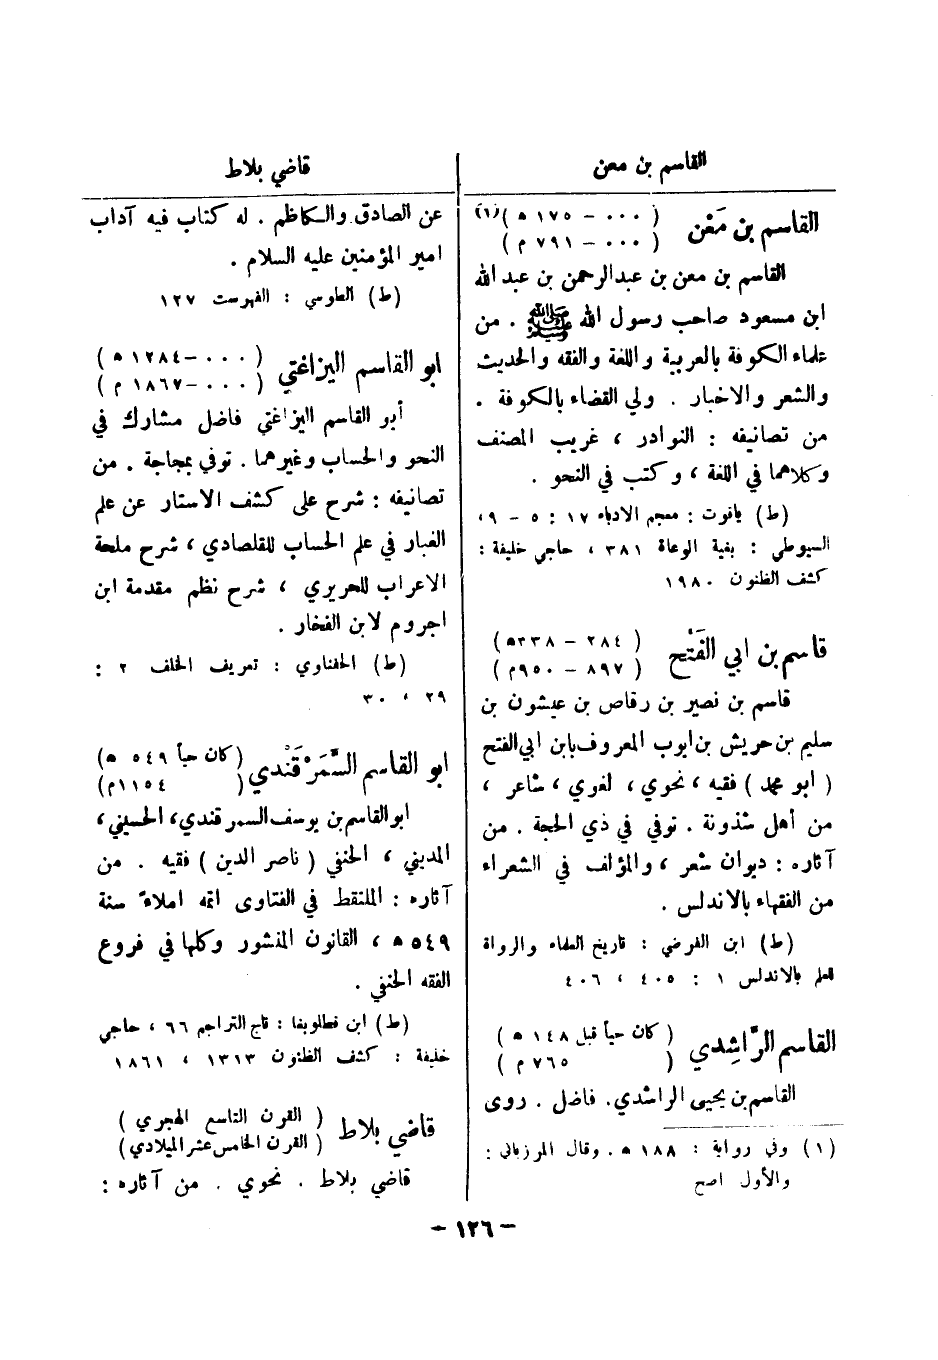 القاسم بن معن
القاسم بن مَعْن ( ٠٠٠ – ١٧٥ ه )(١)
( ٠٠٠ – ٧٩١ م )
القاسم بن معن بن عبدالرحمن بن عبد الله
ابن مسعود صاحب رسول الله ﷺ . من
علماء الكوفة بالعربية واللغة والفقه والحديث
والشعر والاخبار . ولي القضاء بالكوفة .
من تصانيفه : النوادر ، غريب المصنف
وكلاهما في اللغة ، وكتب في النحو .
(ط) ياقوت : معجم الادباء ١٧ : ٥ – ٩ ،
السيوطي : بغية الوعاة ٣٨١ ، حاجي خليفة :
كشف الظنون ١٩٨٠
قاسم بن ابي الفَتْح ( ٢٨٤ – ٣٣٨ه )
( ٨٩٧ – ٩٥٠م )
قاسم بن نصير بن رقاص بن عيشون بن
سليم بن حريش بن ايوب المعروف بابن ابي الفتح
( ابو محمد ) فقيه ، نحوي ، لغوي ، شاعر ،
من أهل شذونة . توفي في ذي الحجة . من
آثاره : ديوان شعر ، والمؤلف في الشعراء
من الفقهاء بالاندلس .
(ط) ابن الفرضي : تاريخ العلماء والرواة
للعلم بالاندلس ١ : ٤٠٥ ، ٤٠٦
القاسم الرَّاشِدي ( كان حياً قبل ١٤٨ ه )
( ٧٦٥ م )
القاسم بن يحيى الراشدي . فاضل . روى
(١) وفي رواية : ١٨٨ ه . وقال المرزباني :
والأول اصح
قاضي بلاط
عن الصادق والكاظم . له كتاب فيه آداب
امير المؤمنين عليه السلام .
(ط) الطوسي : الفهرست ١٢٧
ابو القاسم اليزاغتي ( ٠٠٠ – ١٢٨٤ ه )
( ٠٠٠ – ١٨٦٧ م )
أبو القاسم اليزاغتي فاضل مشارك في
النحو والحساب وغيرهما . توفي بمجاجة . من
تصانيفه : شرح على كشف الاستار عن علم
الغبار في علم الحساب للقلصادي ، شرح ملحة
الاعراب للحريري ، شرح نظم مقدمة ابن
اجروم لابن الفخار .
(ط) الحفناوي : تعريف الخلف ٢ :
٢٩ ، ٣٠
ابو القاسم السَّمَرْقَنْدي ( كان حياً ٥٤٩ ه )
( ١١٥٤م )
ابو القاسم بن يوسف السمرقندي ، الحسيني ،
المديني ، الحنفي ( ناصر الدين ) فقيه . من
آثاره : الملتقط في الفتاوى اتمه املاءً سنة
٥٤٩ ه ، القانون المنشور وكلها في فروع
الفقه الحنفي .
(ط) ابن قطلوبغا : تاج التراجم ٦٦ ، حاجي
خليفة : كشف الظنون ١٣١٣ ، ١٨٦١
قاضي بلاط ( القرن التاسع الهجري )
( القرن الخامس عشر الميلادي )
قاضي بلاط . نحوي . من آثاره :
– ١٢٦ –